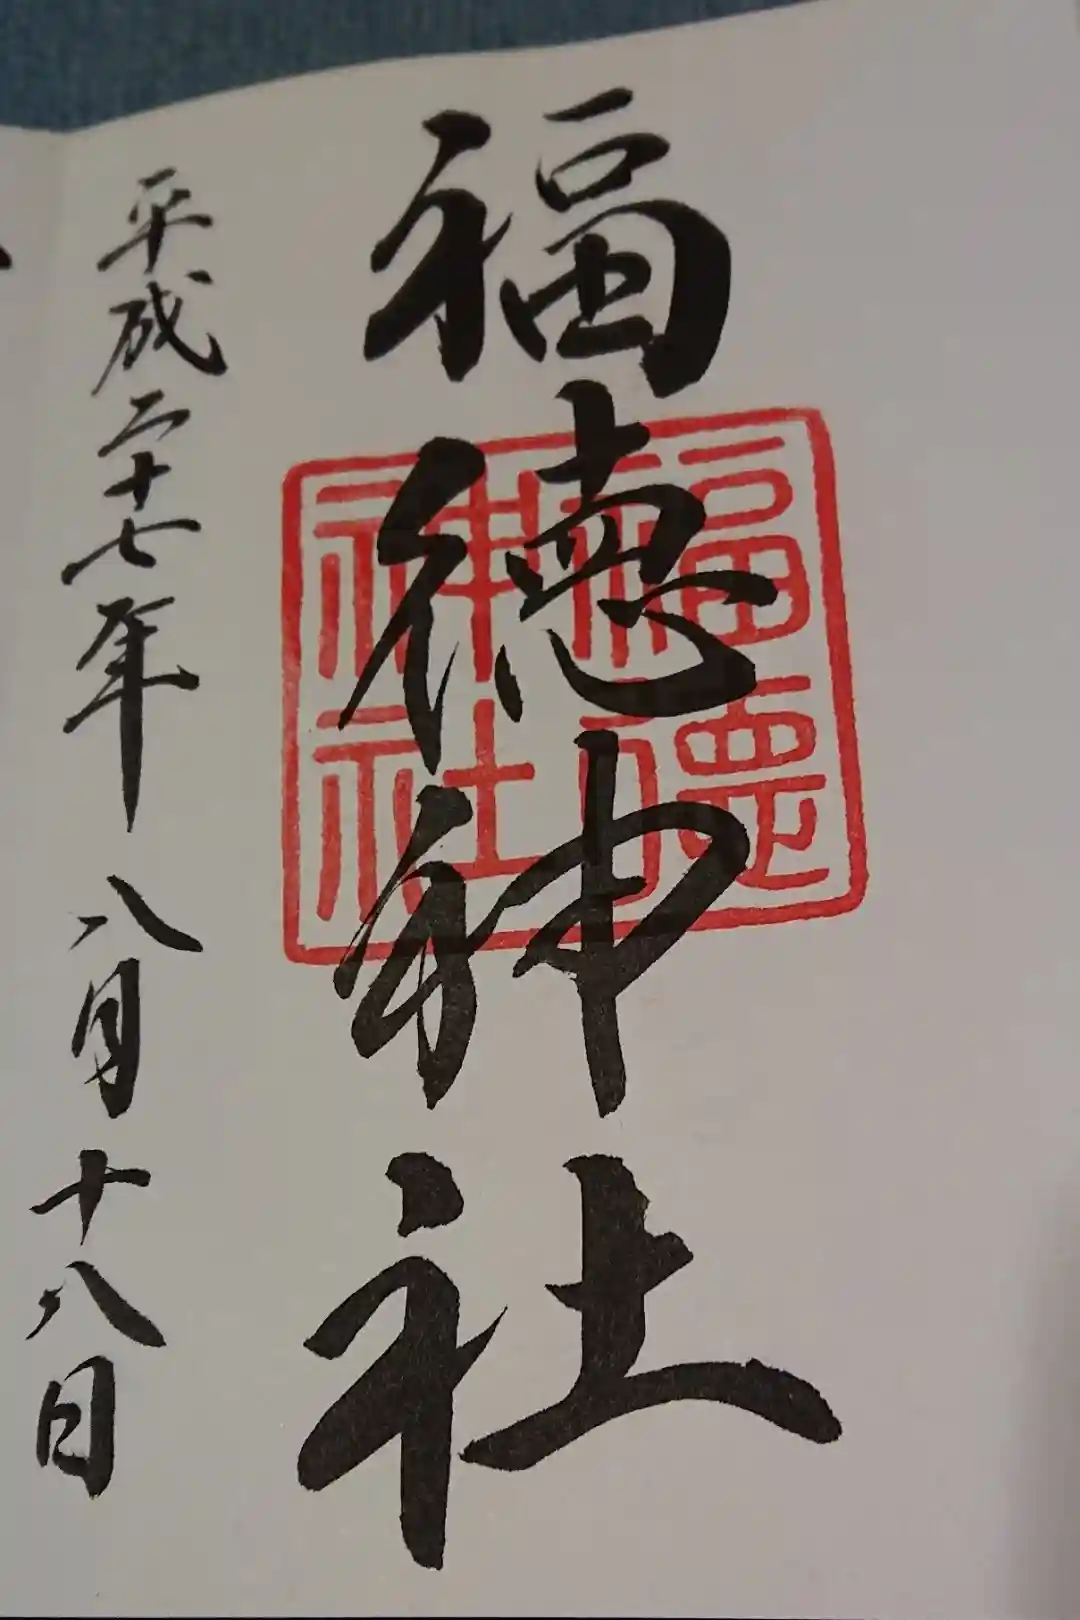 福徳神社
福德
神社
平成二十七年 八月十八日